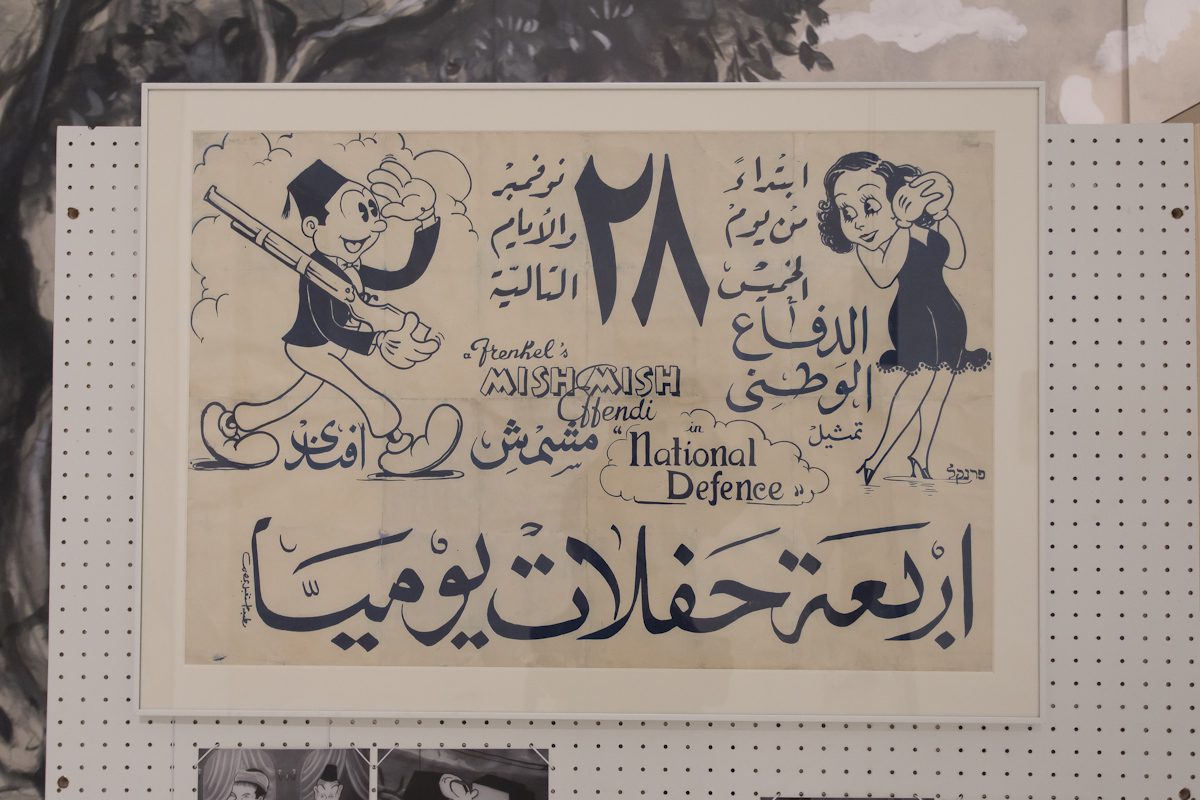 ابتداءً
من يوم
الخميس
٢٨
نوفمبر
والأيام
التالية
الدفاع
الوطنى
تمثيل
مشمش افندى
Frenkel's
MISH-MISH
Effendi
in
"National
Defence"
פרנקל
اربعة حفلات يوميًّا